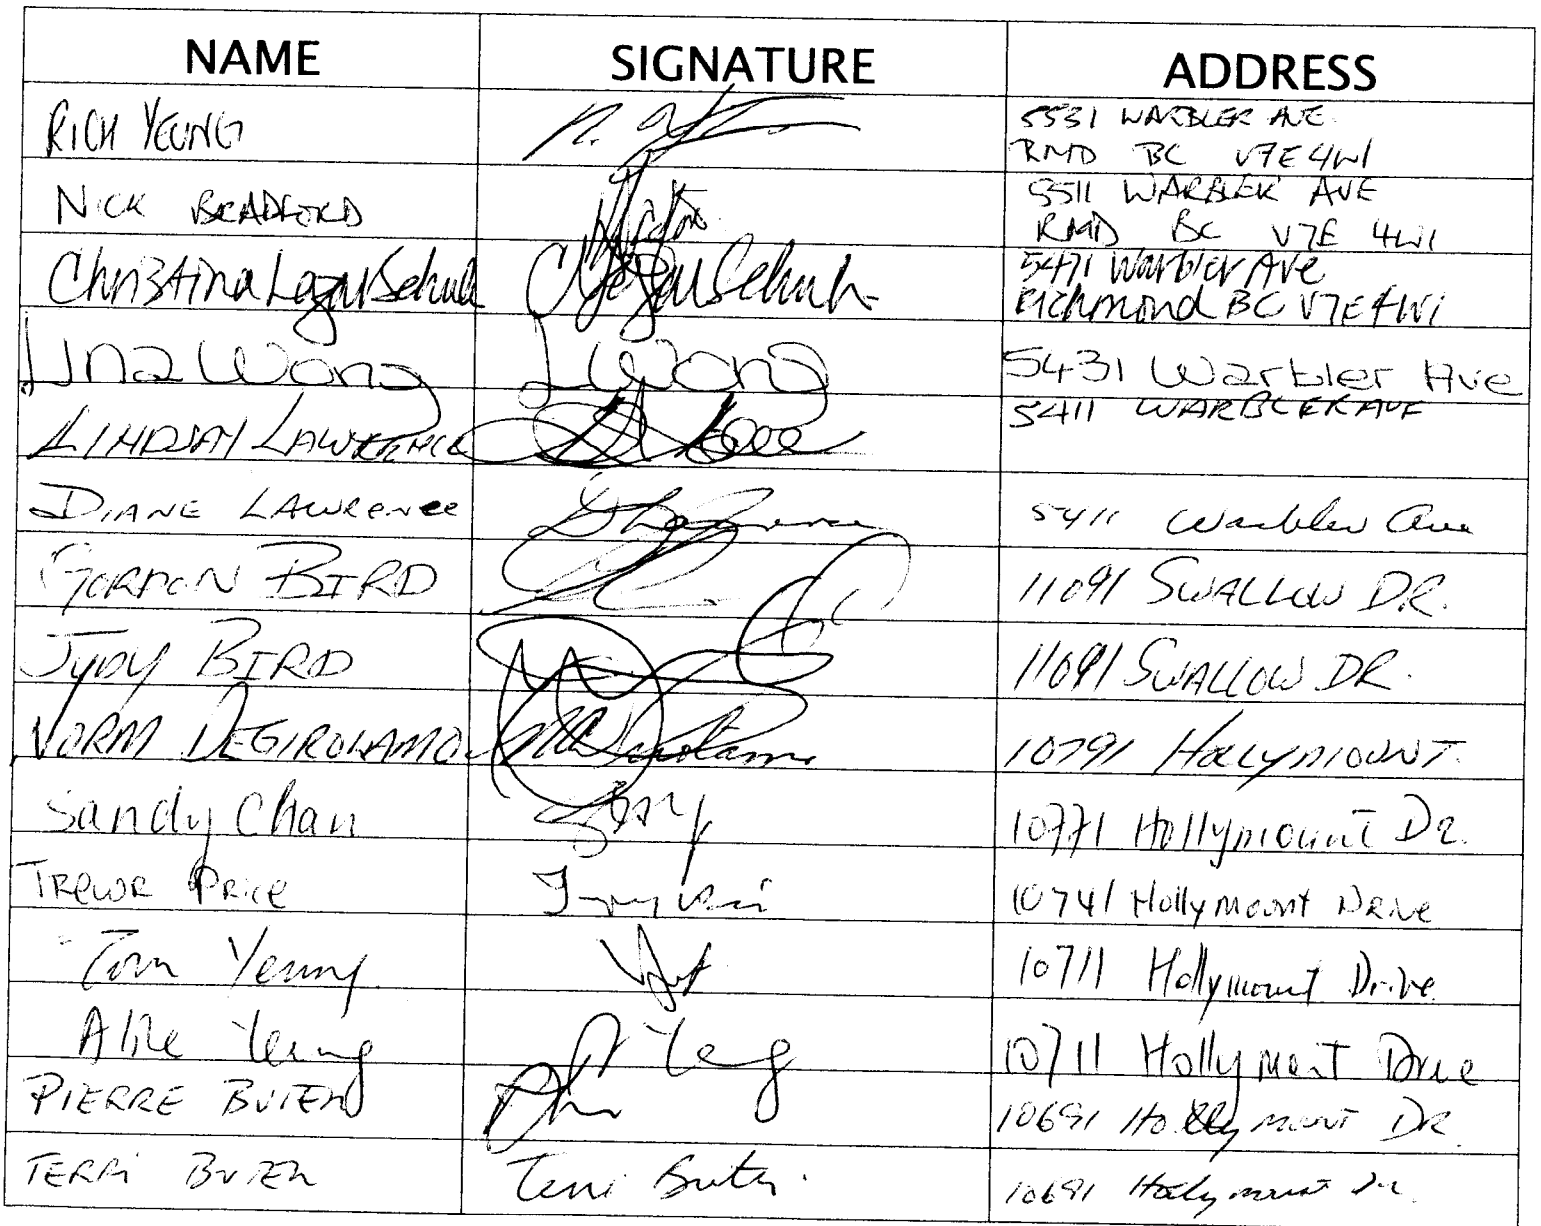 NAME SIGNATURE ADDRESS
RICH YEUNG R. 5531 WARBLER AVE.
RMD BC V7E4W1
NICK BRADFORD 5511 WARBLER AVE
RMD BC V7E 4W1
Christina Lazar Schuh CLazarSchuh 5471 Warbler Ave
Richmond BC V7E4W1
Lina Wong L Wong 5431 Warbler Ave
LINDSAY LAWRENCE 5411 WARBLER AVE
DIANE LAWRENCE 5411 Warbler Ave
GORDON BIRD 11091 SWALLOW DR.
JUDY BIRD 11091 SWALLOW DR.
NORM DEGIROLAMO 10791 HOLLYMOUNT.
Sandy Chan 10771 Hollymount Dr.
TREVOR PRICE 10741 Hollymount DRIVE
Tom Yeung 10711 Hollymount Drive
Alice Yeung A Yeung 10711 Hollymount Drive
PIERRE BUTEN 10691 Hollymount DR.
TERRI BUTEN Terri Buten 10691 Hollymount Dr.